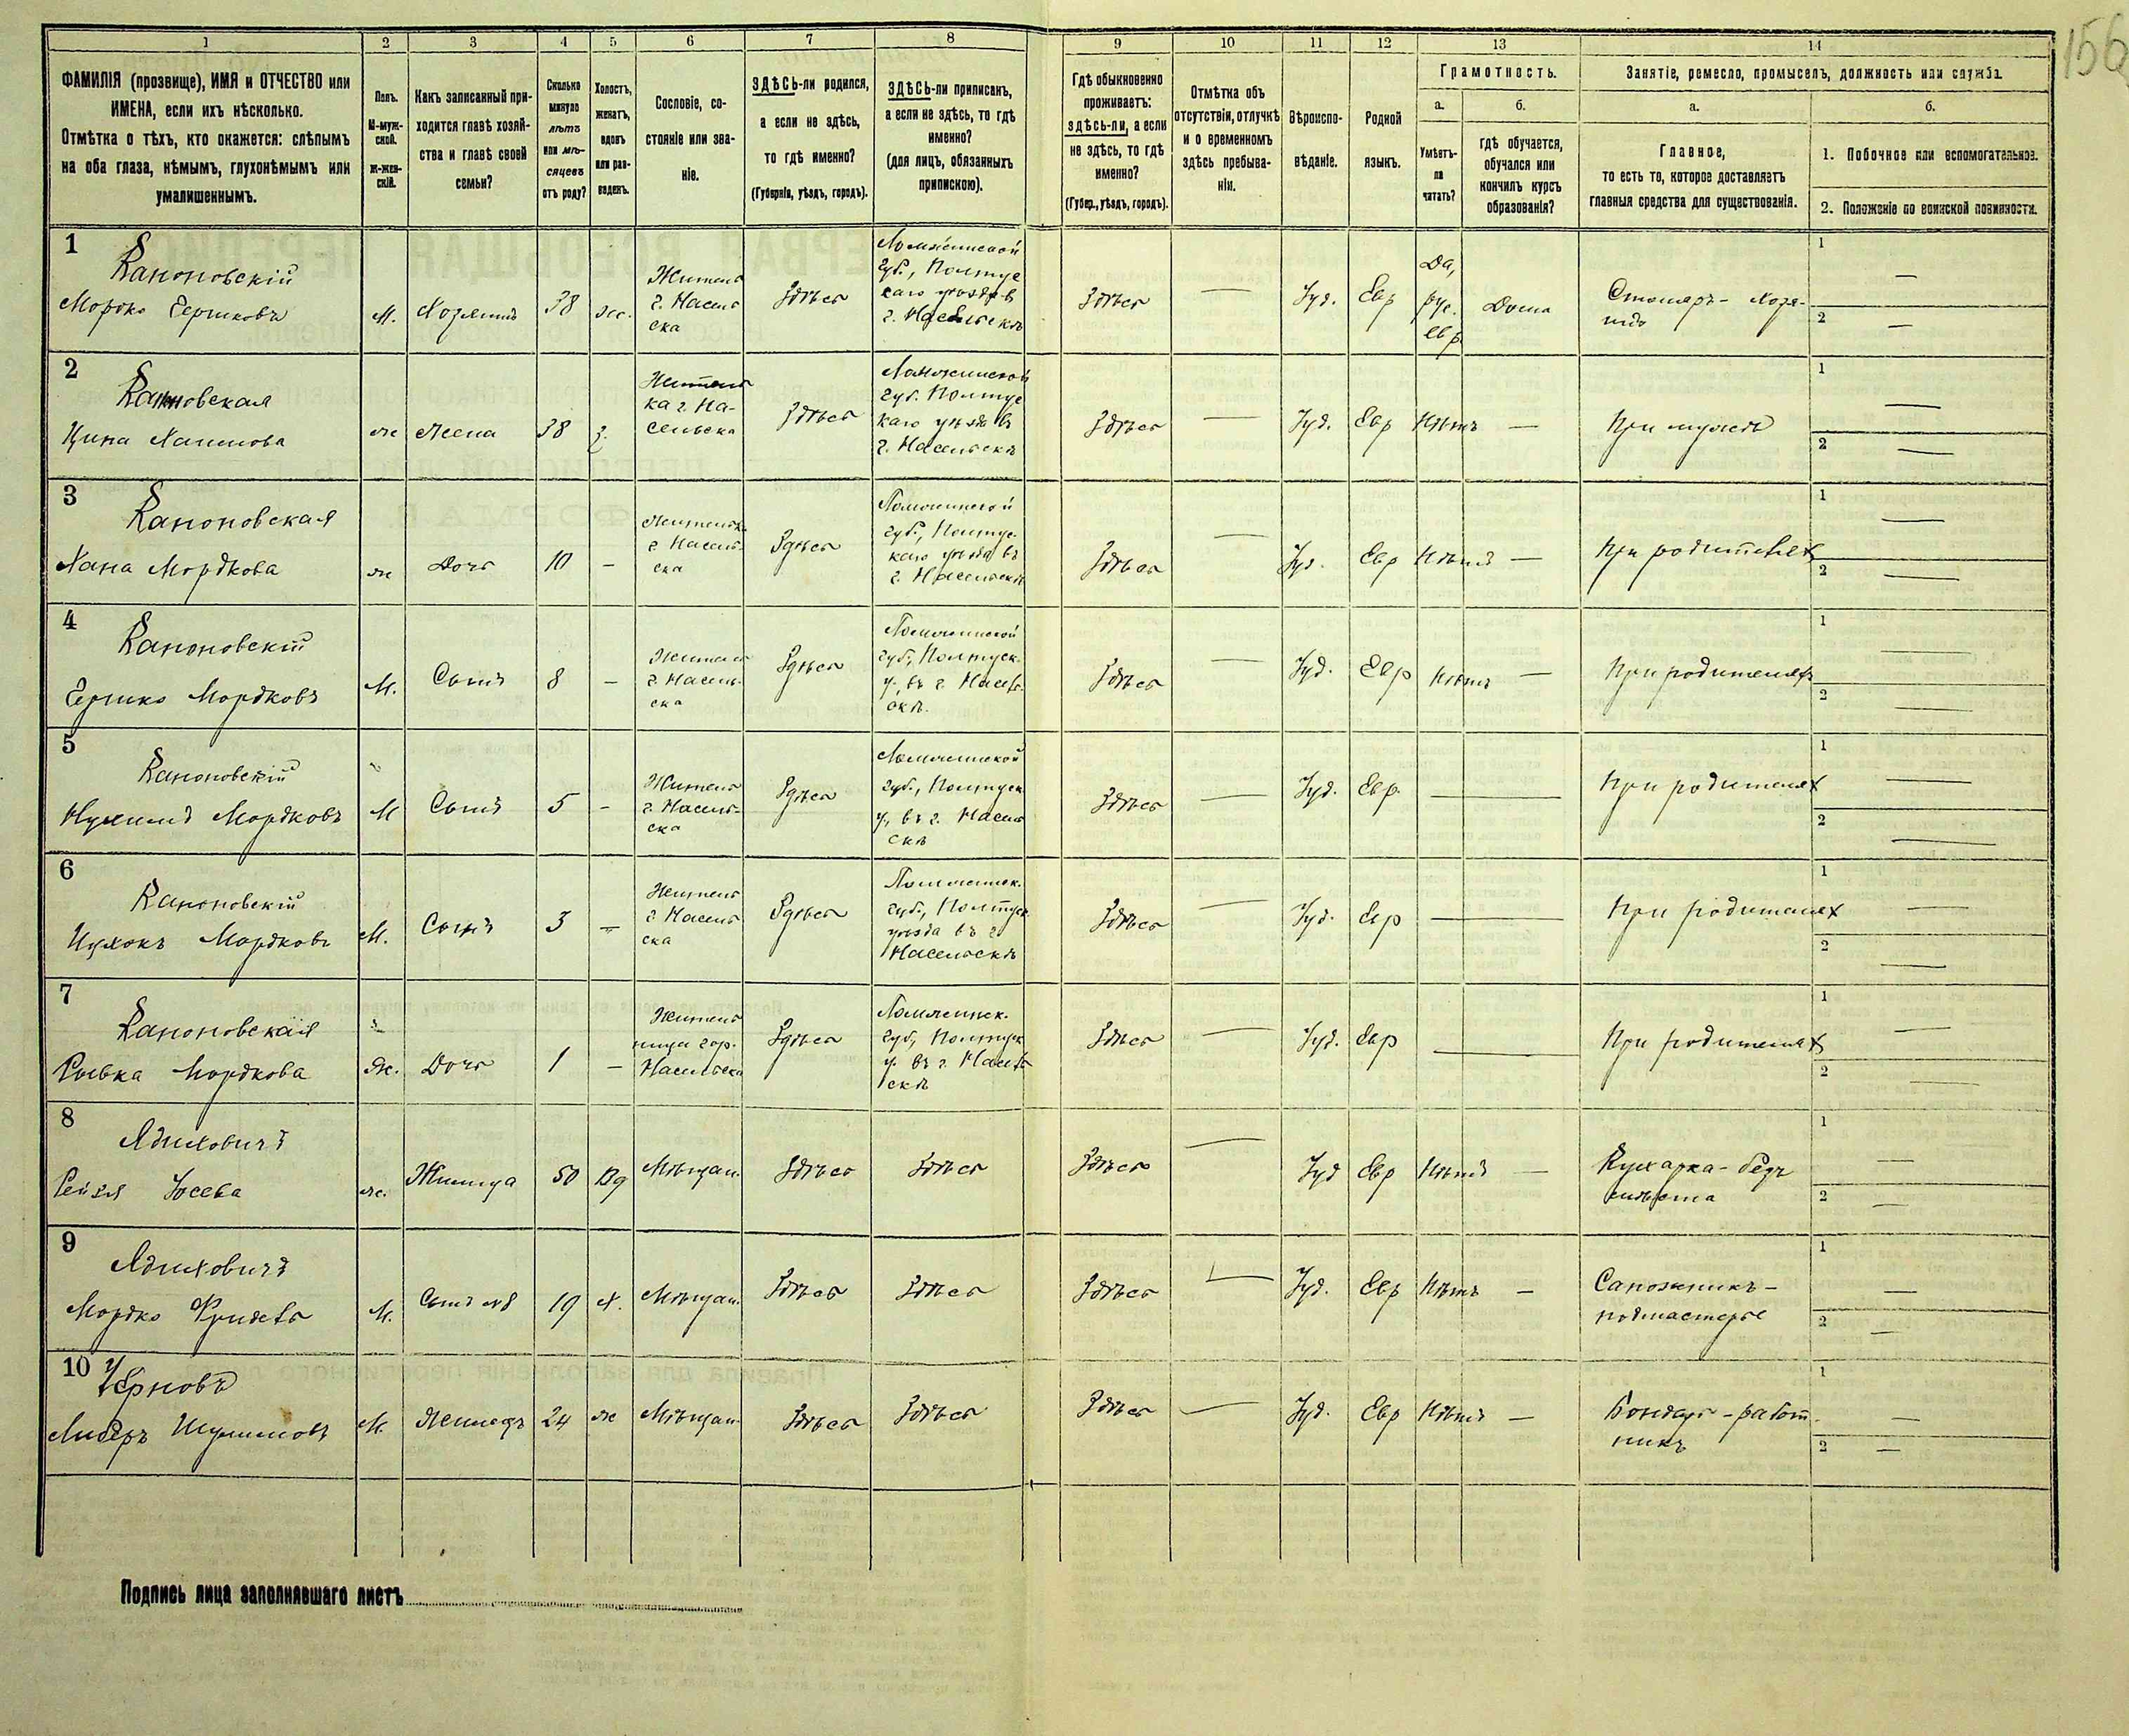 156
1 2 3 4 5 6 7 8 9 10 11 12 13 14
ФАМИЛІЯ (прозвище), ИМЯ и ОТЧЕСТВО или
ИМЕНА, если ихъ нѣсколько.
Отмѣтка о тѣхъ, кто окажется: слѣпымъ
на оба глаза, нѣмымъ, глухонѣмымъ или
умалишеннымъ.
Полъ.
М-муж-
ской.
Ж-жен-
скій.
Какъ записанный при-
ходится главѣ хозяй-
ства и главѣ своей
семьи?
Сколько
минуло
лѣтъ
или мѣ-
сяцевъ
отъ роду?
Холостъ,
женатъ,
вдовъ
или раз-
веденъ.
Сословіе, со-
стояніе или зва-
ніе.
ЗДѢСЬ-ли родился,
а если не здѣсь,
то гдѣ именно?
(Губернія, уѣздъ, городъ).
ЗДѢСЬ-ли приписанъ,
а если не здѣсь, то гдѣ
именно?
(для лицъ, обязанныхъ
припискою).
Гдѣ обыкновенно
проживаетъ:
здѣсь-ли, а если
не здѣсь, то гдѣ
именно?
(Губер., уѣздъ, городъ).
Отмѣтка объ
отсутствіи, отлучкѣ
и о временномъ
здѣсь пребыва-
ніи.
Вѣроиспо-
вѣданіе.
Родной
языкъ.
Грамотность.
а.
Умѣетъ-
ли
читать?
б.
гдѣ обучается,
обучался или
кончилъ курсъ
образованія?
Занятіе, ремесло, промыселъ, должность или служба.
а.
Главное,
то есть то, которое доставляетъ
главныя средства для существованія.
б.
1. Побочное или вспомогательное.
2. Положеніе по воинской повинности.
1
Капоновскій
Мордко Гершковъ
М.
Хозяинъ
38
же.
Житель
г. Насель
ска
Здѣсь
Ломжинской
губ., Полтус
каго уѣзда въ
г. Насельскѣ
Здѣсь
—
Іуд.
Евр
Да,
рус.
евр.
Дома
Столяръ - хозя-
инъ
1 —
2 —
2
Капоновская
Цина Хаимова
ж
Жена
38
з.
Житель
ка г. На-
сельска
Здѣсь
Ломжинской
губ. Полтус
каго уѣзда въ
г. Насельскѣ
Здѣсь
—
Іуд.
Евр
Нѣтъ
—
При мужѣ
1 —
2 —
3
Капоновская
Хана Мордкова
ж
Дочь
10
—
г. Насель-
ска
Здѣсь
Ломжинской
губ., Полтус-
каго уѣзда въ
г. Насельскѣ
Здѣсь
—
Іуд.
Евр
Нѣтъ
—
При родителяхъ
1 —
2 —
4
Капоновскій
Гершко Мордковъ
М.
Сынъ
8
—
Житель
г. Насель-
ска
Здѣсь
Ломжинской
губ., Полтуск.
у., въ г. Насель-
скѣ.
Здѣсь
—
Іуд.
Евр
Нѣтъ
—
При родителяхъ
1 —
2 —
5
Капоновскій
Мордковъ
М
Сынъ
5
—
Житель
г. Насель-
ска
Здѣсь
Ломжинской
губ., Полтуск
у., въ г. Насель
скѣ
Здѣсь
—
Іуд.
Евр.
—
При родителях
1 —
2 —
6
Капоновскій
Мордковъ
М.
Сынъ
3
—
Житель
г. Насель
ска
Здѣсь
Ломжинск.
губ., Полтуск
уѣзда въ г
Насельскѣ
Здѣсь
—
Іуд.
Евр
—
При родителях
1 —
2 —
7
Капоновская
Рывка Мордкова
Ж.
Дочь
1
—
Житель
ница гор.
Насельска
Здѣсь
Ломжинск.
губ., Полтуск
у. въ г. Насель
скѣ
Здѣсь
—
Іуд.
Евр
—
При родителях
1 —
2 —
8
Рейзя Іосева
ж.
Жилица
50
Вд
Мѣщан.
Здѣсь
Здѣсь
Здѣсь
—
Іуд
Евр
Нѣтъ
—
Кухарка - безъ
мѣста
1 —
2 —
9
Мордко
М.
Сынъ №8
19
Х.
Мѣщан.
Здѣсь
Здѣсь
Здѣсь
—
Іуд.
Евр
Нѣтъ
—
Сапожникъ -
подмастерье
1 —
2 —
10
Черновъ
М.
Жилецъ
24
ж
Мѣщан
Здѣсь
Здѣсь
Здѣсь
—
Іуд.
Евр
Нѣтъ
—
Бондарь - работ
никъ
1 —
2 —
Подпись лица заполнявшаго листъ